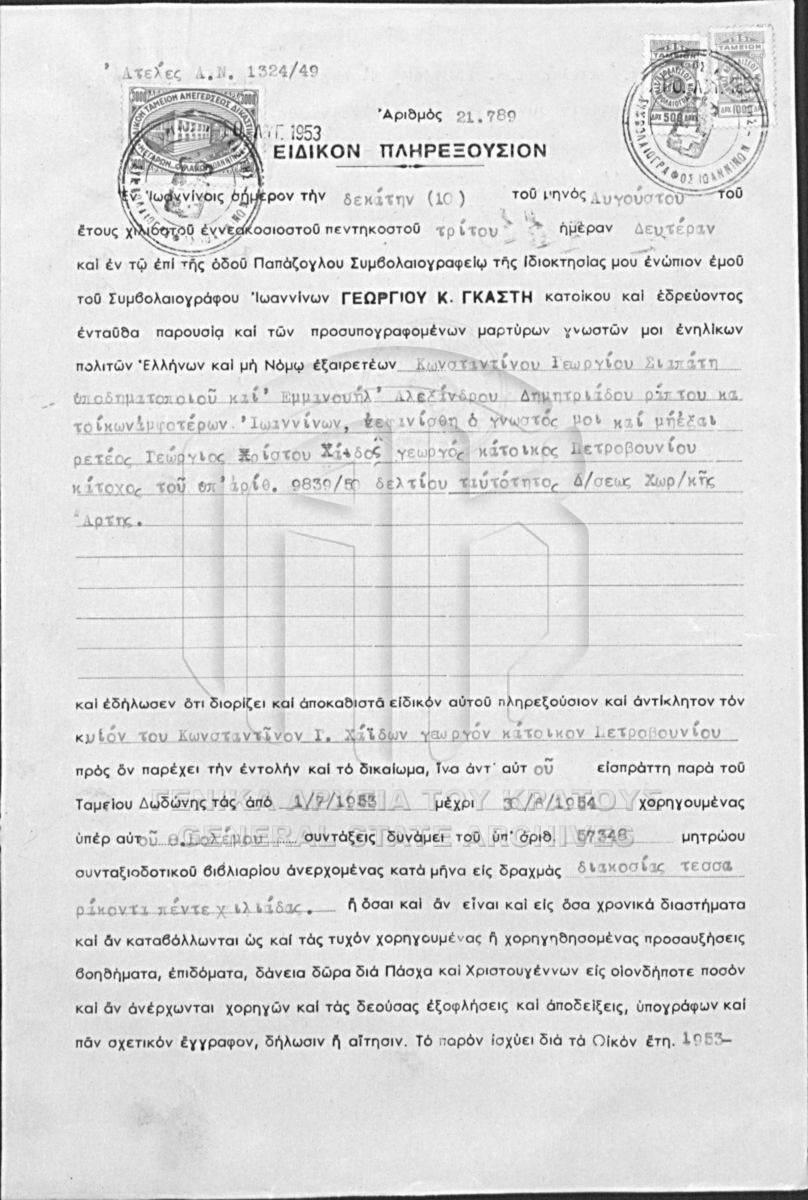 Ἀτελές Α.Ν. 1324/49
Ἀριθμὸς 21.789
10 ΑΥΓ. 1953
ΕΙΔΙΚΟΝ ΠΛΗΡΕΞΟΥΣΙΟΝ
Ἐν Ἰωαννίνοις σήμερον τὴν δεκάτην (10) τοῦ μηνός Αὐγούστου τοῦ
ἔτους χιλιοστοῦ ἐννεακοσιοστοῦ πεντηκοστοῦ τρίτου ἡμέραν Δευτέραν
καὶ ἐν τῷ ἐπὶ τῆς ὁδοῦ Παπάζογλου Συμβολαιογραφείῳ τῆς ἰδιοκτησίας μου ἐνώπιον ἐμοῦ
τοῦ Συμβολαιογράφου Ἰωαννίνων ΓΕΩΡΓΙΟΥ Κ. ΓΚΑΣΤΗ κατοίκου καὶ ἑδρεύοντος
ἐνταῦθα παρουσίᾳ καὶ τῶν προσυπογραφομένων μαρτύρων γνωστῶν μοι ἐνηλίκων
πολιτῶν Ἑλλήνων καὶ μὴ Νόμῳ ἐξαιρετέων Κωνσταντίνου Γεωργίου Σιαπάτη
ὑποδηματοποιοῦ καί Ἐμμανουήλ Ἀλεξάνδρου Δημητριάδου ράπτου κα
τοίκων ἀμφοτέρων Ἰωαννίνων, ἐεφανίσθη ὁ γνωστός μοι καί μήἐξαι
ρετέος Γεώργιος Χρίστου Χάϊδος γεωργός κάτοικος Πετροβουνίου
κάτοχος τοῦ ὑπ' ἀρίθ. 9839/50 δελτίου ταὐτότητος Δ/σεως Χωρ/κῆς
Ἄρτης.
καὶ ἐδήλωσεν ὅτι διορίζει καὶ ἀποκαθιστᾷ εἰδικόν αὐτοῦ πληρεξούσιον καὶ ἀντίκλητον τόν
κ υἱόν του Κωνσταντῖνον Γ. Χάϊδων γεωργόν κάτοικον Πετροβουνίου
πρὸς ὅν παρέχει τὴν ἐντολήν καὶ τό δικαίωμα, ἵνα ἀντ' αὐτ οῦ εἰσπράττῃ παρὰ τοῦ
Ταμείου Δωδώνης τάς ἀπό 1/7/1953 μέχρι 30/6/1954 χορηγουμένας
ὑπέρ αὐτοῦ θ.Πολέμου συντάξεις δυνάμει τοῦ ὑπ' ἀριθ. 57348 μητρώου
συνταξιοδοτικοῦ βιβλιαρίου ἀνερχομένας κατὰ μῆνα εἰς δραχμὰς διακοσίας τεσσα
ράκοντα πέντε χιλιάδας. ἢ ὅσαι καὶ ἄν εἶναι καὶ εἰς ὅσα χρονικὰ διαστήματα
καὶ ἄν καταβάλλωνται ὡς καὶ τὰς τυχόν χορηγουμένας ἢ χορηγηθησομένας προσαυξήσεις
βοηθήματα, ἐπιδόματα, δάνεια δῶρα διὰ Πάσχα καὶ Χριστουγέννων εἰς οἱονδήποτε ποσόν
καὶ ἄν ἀνέρχωνται χορηγῶν καὶ τὰς δεούσας ἐξοφλήσεις καὶ ἀποδείξεις, ὑπογράφων καὶ
πᾶν σχετικόν ἔγγραφον, δήλωσιν ἢ αἴτησιν. Τὸ παρόν ἰσχύει διὰ τὰ Οἰκόν ἔτη. 1953-
ΓΕΝΙΚΑ ΑΡΧΕΙΑ ΤΟΥ ΚΡΑΤΟΥΣ
GENERAL STATE ARCHIVES